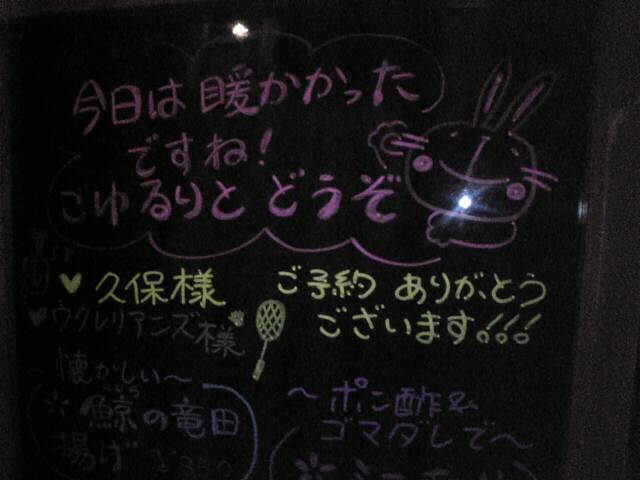 今日は暖かかった
ですね!
ごゆるりと どうぞ
久保様
ウクレリアンズ様
ご予約 ありがとう
ございます!!!
～懐かしい～
鯨の竜田
揚げ ¥350
～ポン酢&
ゴマダレで～